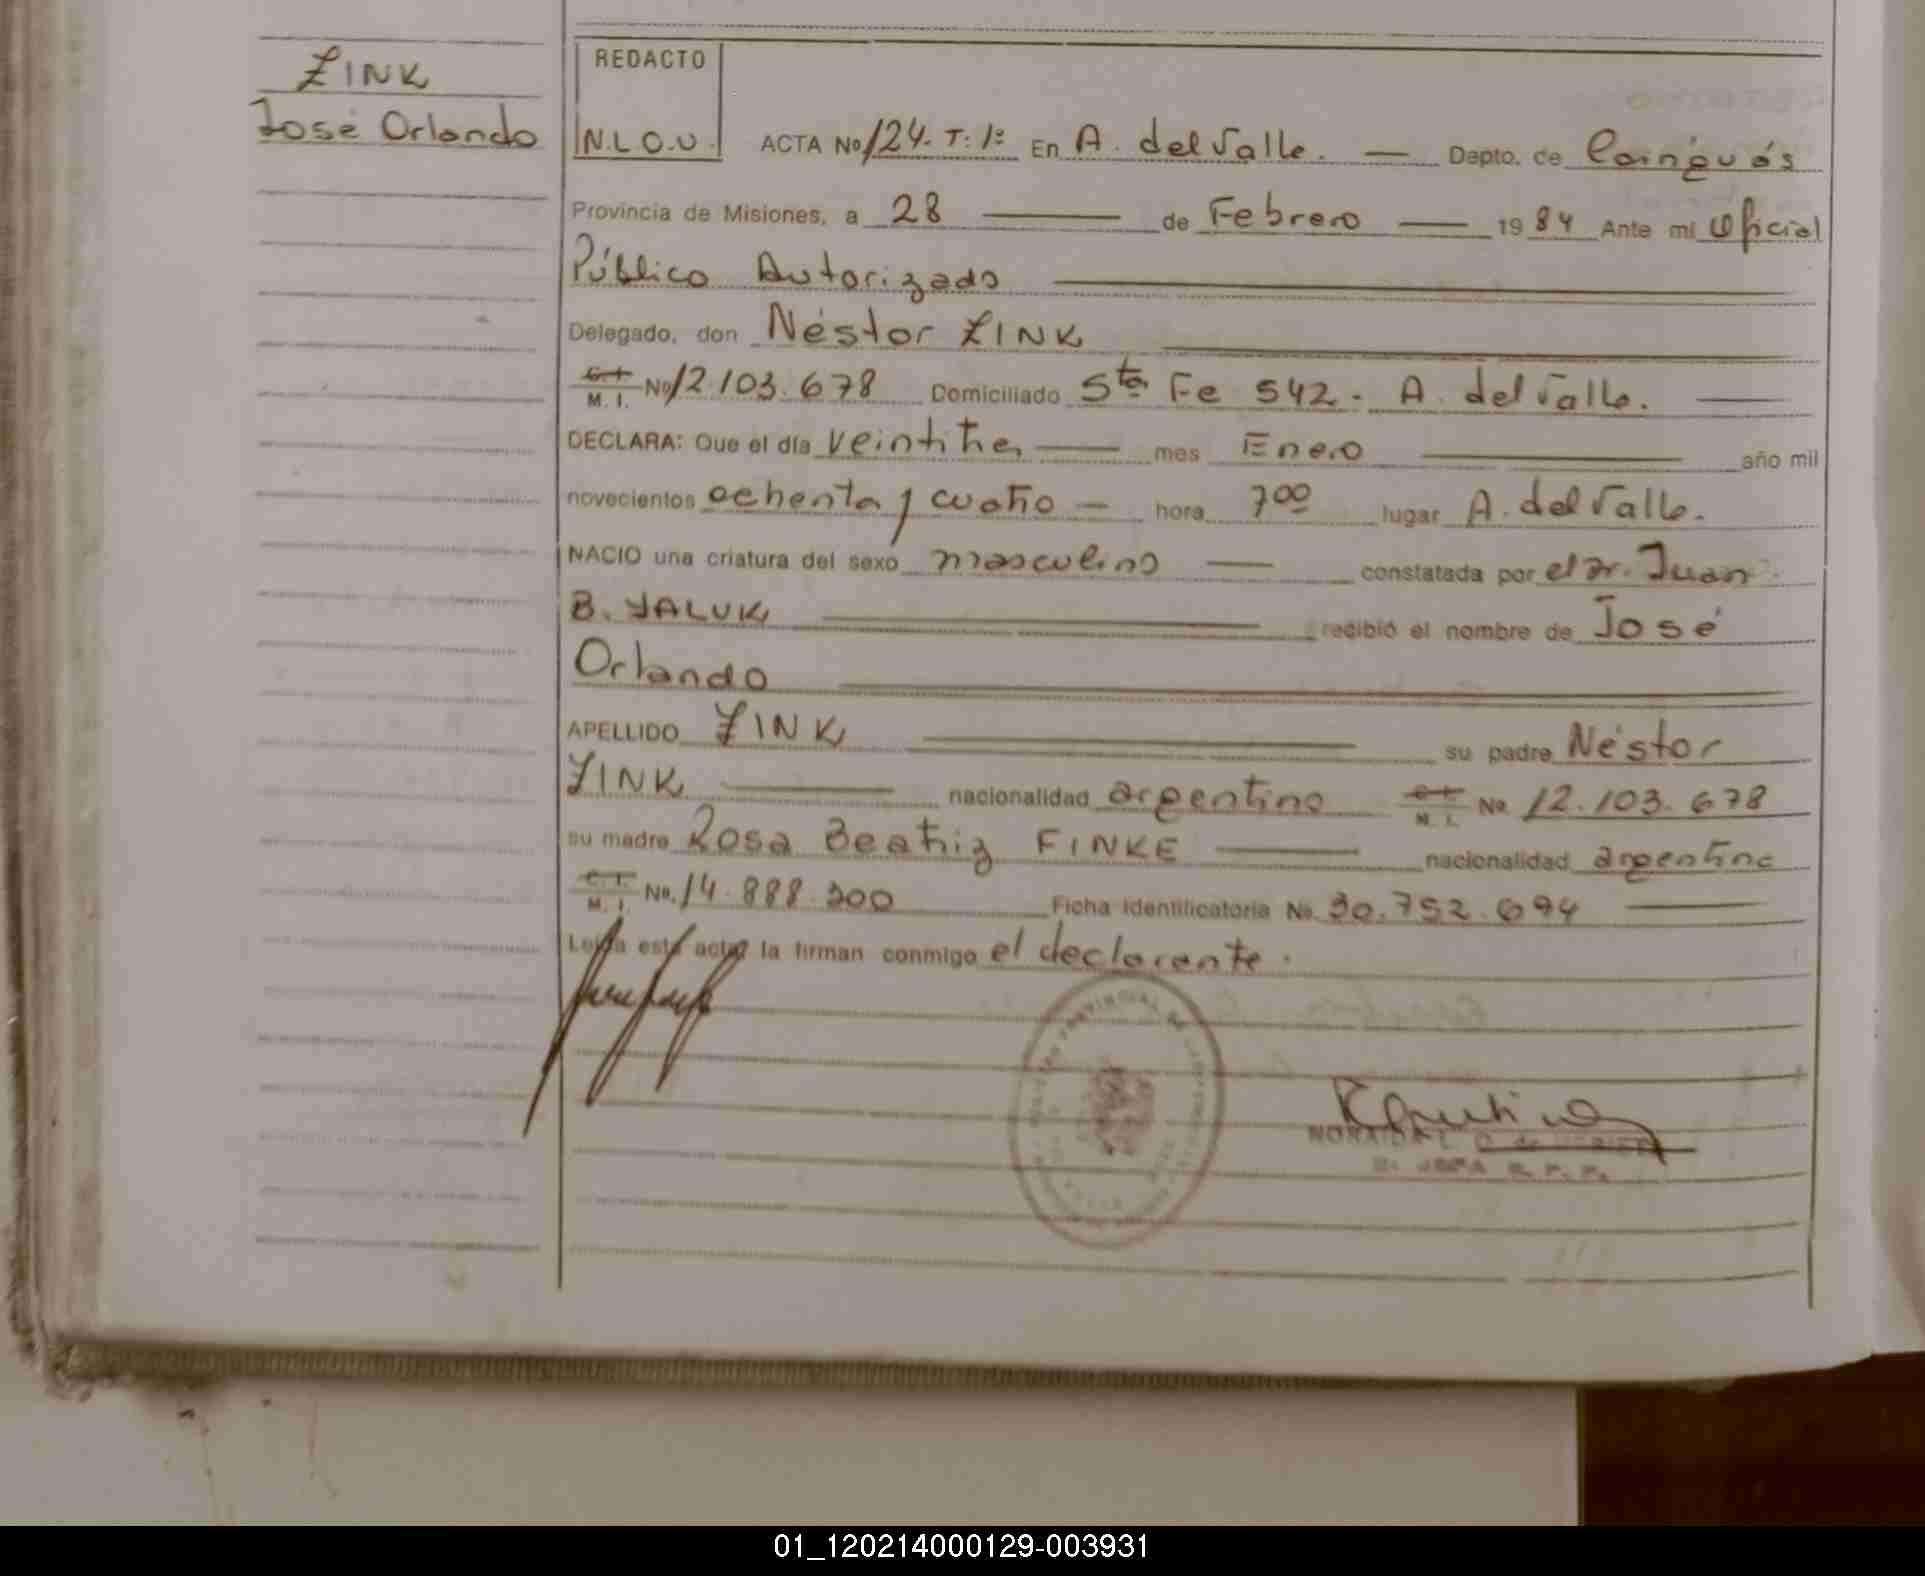 ZINK
José Orlando
REDACTO
N.L.O.U.
ACTA No 124. T: 1º En A. del Valle. — Dapto. de Cainguás
Provincia de Misiones, a 28 — de Febrero — 1984 Ante mi Oficial
Público Autorizado —
Delegado, don Néstor ZINK —
C.I. M.I. No 12.103.678 Domiciliado Sta Fe 542. A. del Valle. —
DECLARA: Que el día veintitres — mes Enero — año mil
novecientos ochenta y cuatro — hora 700 lugar A. del Valle.
NACIO una criatura del sexo masculino — constatada por el Dr. Juan
B. YALUK — recibió el nombre de José
Orlando —
APELLIDO ZINK — su padre Néstor
ZINK — nacionalidad argentino C.I. M.I. No. 12.103.678
su madre Rosa Beatriz FINKE — nacionalidad argentina
C.I. M.I. No. 14.888.200 Ficha Identificatoria No. 30.752.694 —
Leída esta acta, la firman conmigo el declarante.
PROVINCIAL
01_120214000129-003931